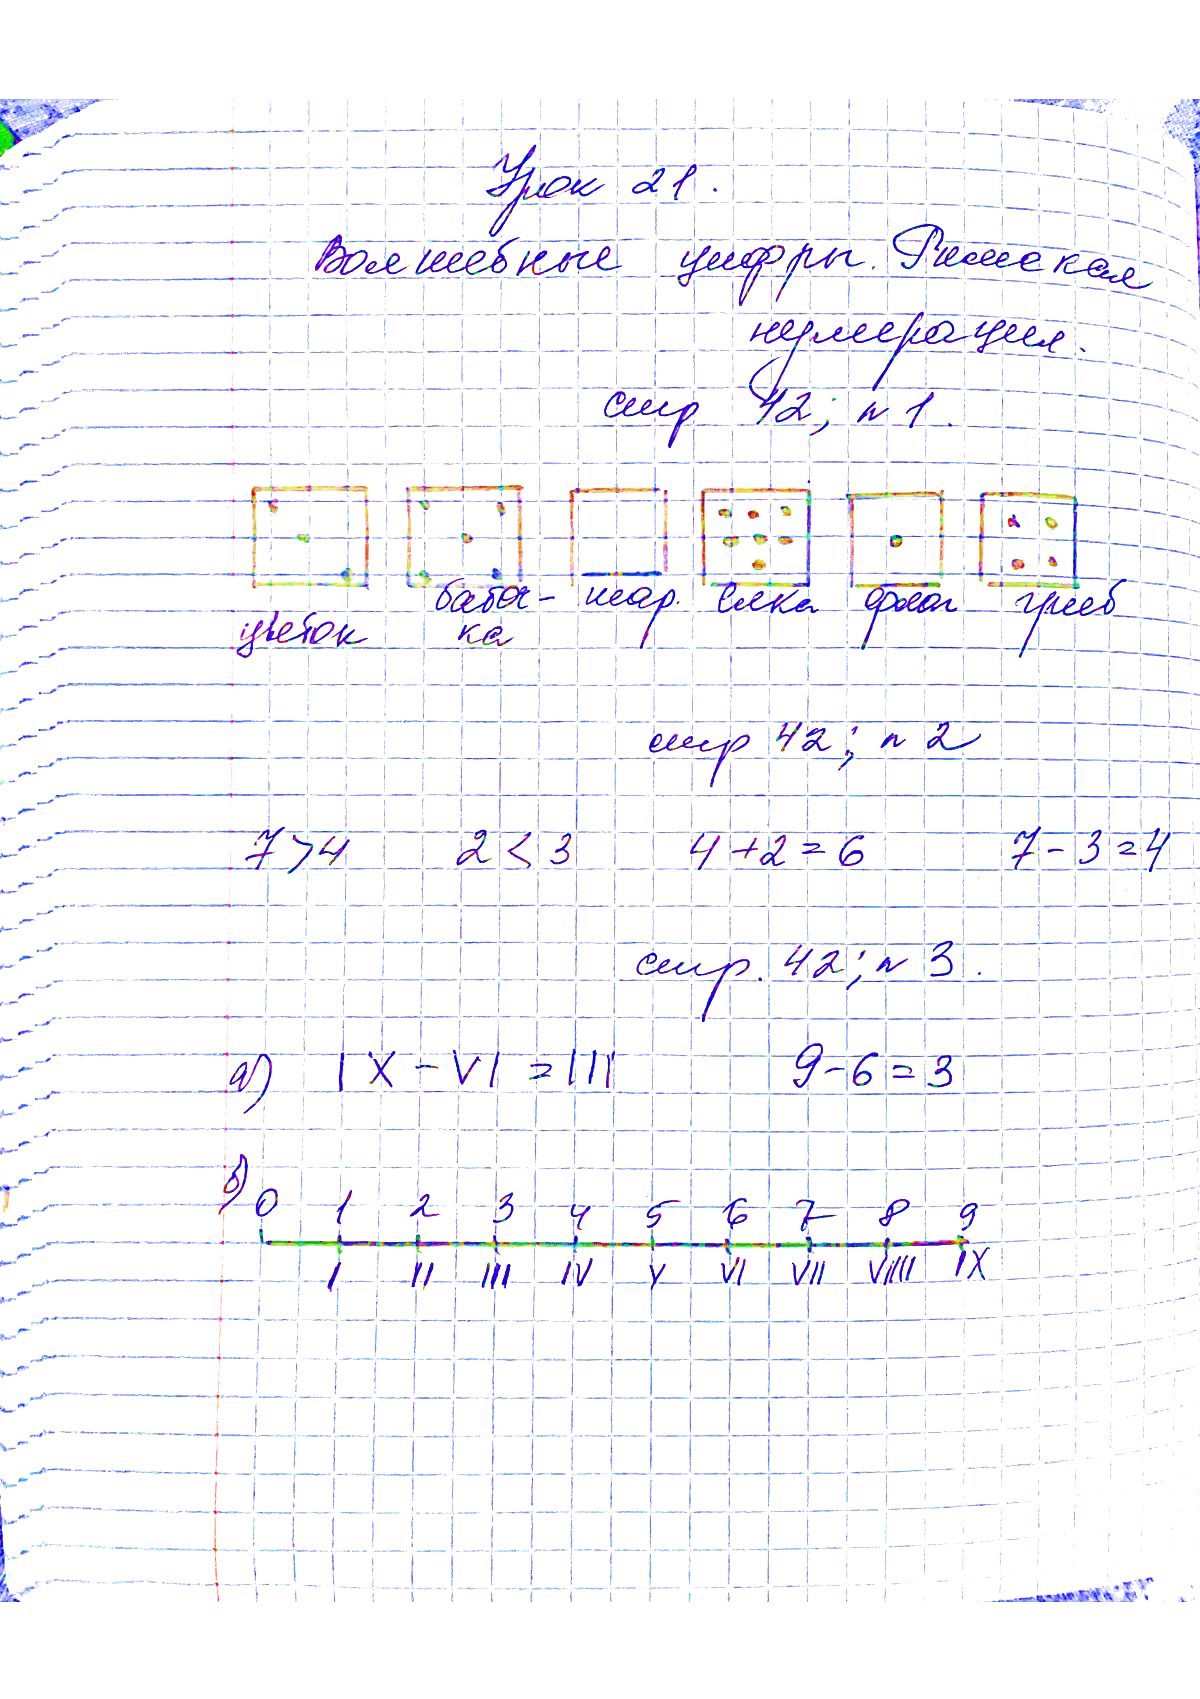 Урок 21.
Волшебные цифры. Римская
нумерация.
стр 42; n 1.
цветок бабоч- шар. ёлка флаг гриб
ка
стр 42; n 2
7 > 4 2 < 3 4 + 2 = 6 7 - 3 = 4
стр. 42; n 3.
а) IX - VI = III 9 - 6 = 3
б) 0 1 2 3 4 5 6 7 8 9
I II III IV V VI VII VIIII IX